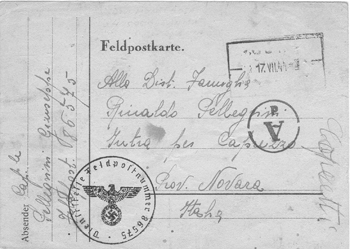 Feldpostkarte.
17.VII.44
Alla Dist. Famiglia
Rinaldo Pellegrini
Intra per
Prov. Novara
Italia
A
Absender:
Pellegrini Giuseppe
Feldpost 86575
Dienststelle Feldpostnummer 86575